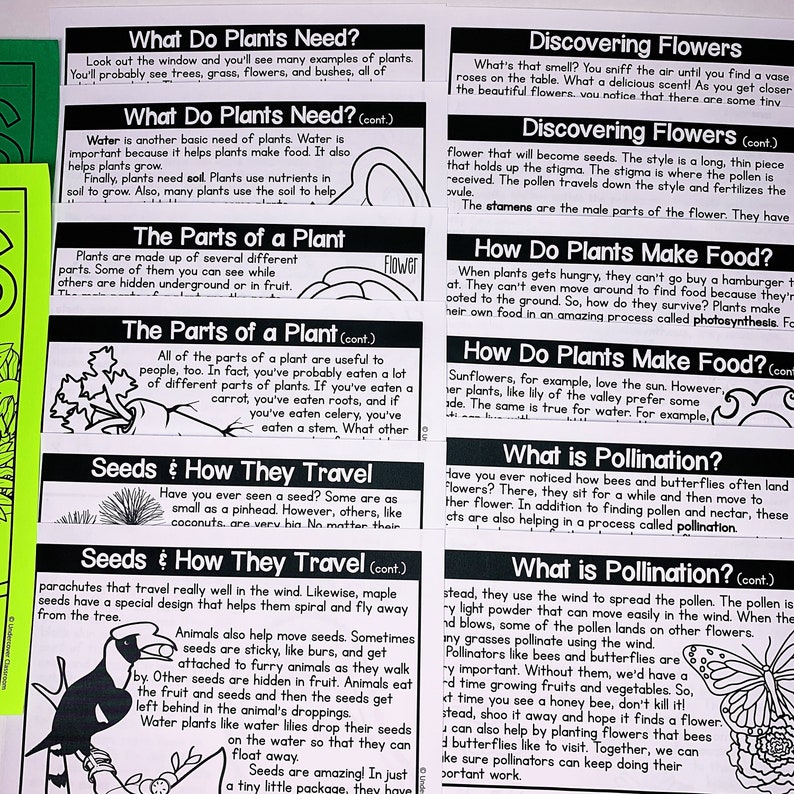 What Do Plants Need?
Look out the window and you'll see many examples of plants.
You'll probably see trees, grass, flowers, and bushes, all of
What Do Plants Need? (cont.)
Water is another basic need of plants. Water is
important because it helps plants make food. It also
helps plants grow.
Finally, plants need soil. Plants use nutrients in
soil to grow. Also, many plants use the soil to help
The Parts of a Plant
Plants are made up of several different
parts. Some of them you can see while
others are hidden underground or in fruit.
Flower
The Parts of a Plant (cont.)
All of the parts of a plant are useful to
people, too. In fact, you've probably eaten a lot
of different parts of plants. If you've eaten a
carrot, you've eaten roots, and if
you've eaten celery, you've
eaten a stem. What other
Seeds & How They Travel
Have you ever seen a seed? Some are as
small as a pinhead. However, others, like
coconuts, are very big. No matter their
Seeds & How They Travel (cont.)
parachutes that travel really well in the wind. Likewise, maple
seeds have a special design that helps them spiral and fly away
from the tree.
Animals also help move seeds. Sometimes
seeds are sticky, like burs, and get
attached to furry animals as they walk
by. Other seeds are hidden in fruit. Animals eat
the fruit and seeds and then the seeds get
left behind in the animal's droppings.
Water plants like water lilies drop their seeds
on the water so that they can
float away.
Seeds are amazing! In just
a tiny little package, they have
© Undercover Classroom
Discovering Flowers
What's that smell? You sniff the air until you find a vase
roses on the table. What a delicious scent! As you get closer
the beautiful flowers, you notice that there are some tiny
Discovering Flowers (cont.)
flower that will become seeds. The style is a long, thin piece
that holds up the stigma. The stigma is where the pollen is
received. The pollen travels down the style and fertilizes the
ovule.
The stamens are the male parts of the flower. They have
How Do Plants Make Food?
When plants gets hungry, they can't go buy a hamburger t
at. They can't even move around to find food because they'r
ooted to the ground. So, how do they survive? Plants make
heir own food in an amazing process called photosynthesis. Fo
How Do Plants Make Food? (cont
Sunflowers, for example, love the sun. However,
her plants, like lily of the valley prefer some
ade. The same is true for water. For example,
What is Pollination?
Have you ever noticed how bees and butterflies often land
flowers? There, they sit for a while and then move to
ther flower. In addition to finding pollen and nectar, these
cts are also helping in a process called pollination.
What is Pollination? (cont.)
stead, they use the wind to spread the pollen. The pollen is
ry light powder that can move easily in the wind. When the
nd blows, some of the pollen lands on other flowers.
any grasses pollinate using the wind.
Pollinators like bees and butterflies are
ry important. Without them, we'd have a
rd time growing fruits and vegetables. So,
xt time you see a honey bee, don't kill it!
stead, shoo it away and hope it finds a flower.
u can also help by planting flowers that bees
d butterflies like to visit. Together, we can
ke sure pollinators can keep doing their
portant work.